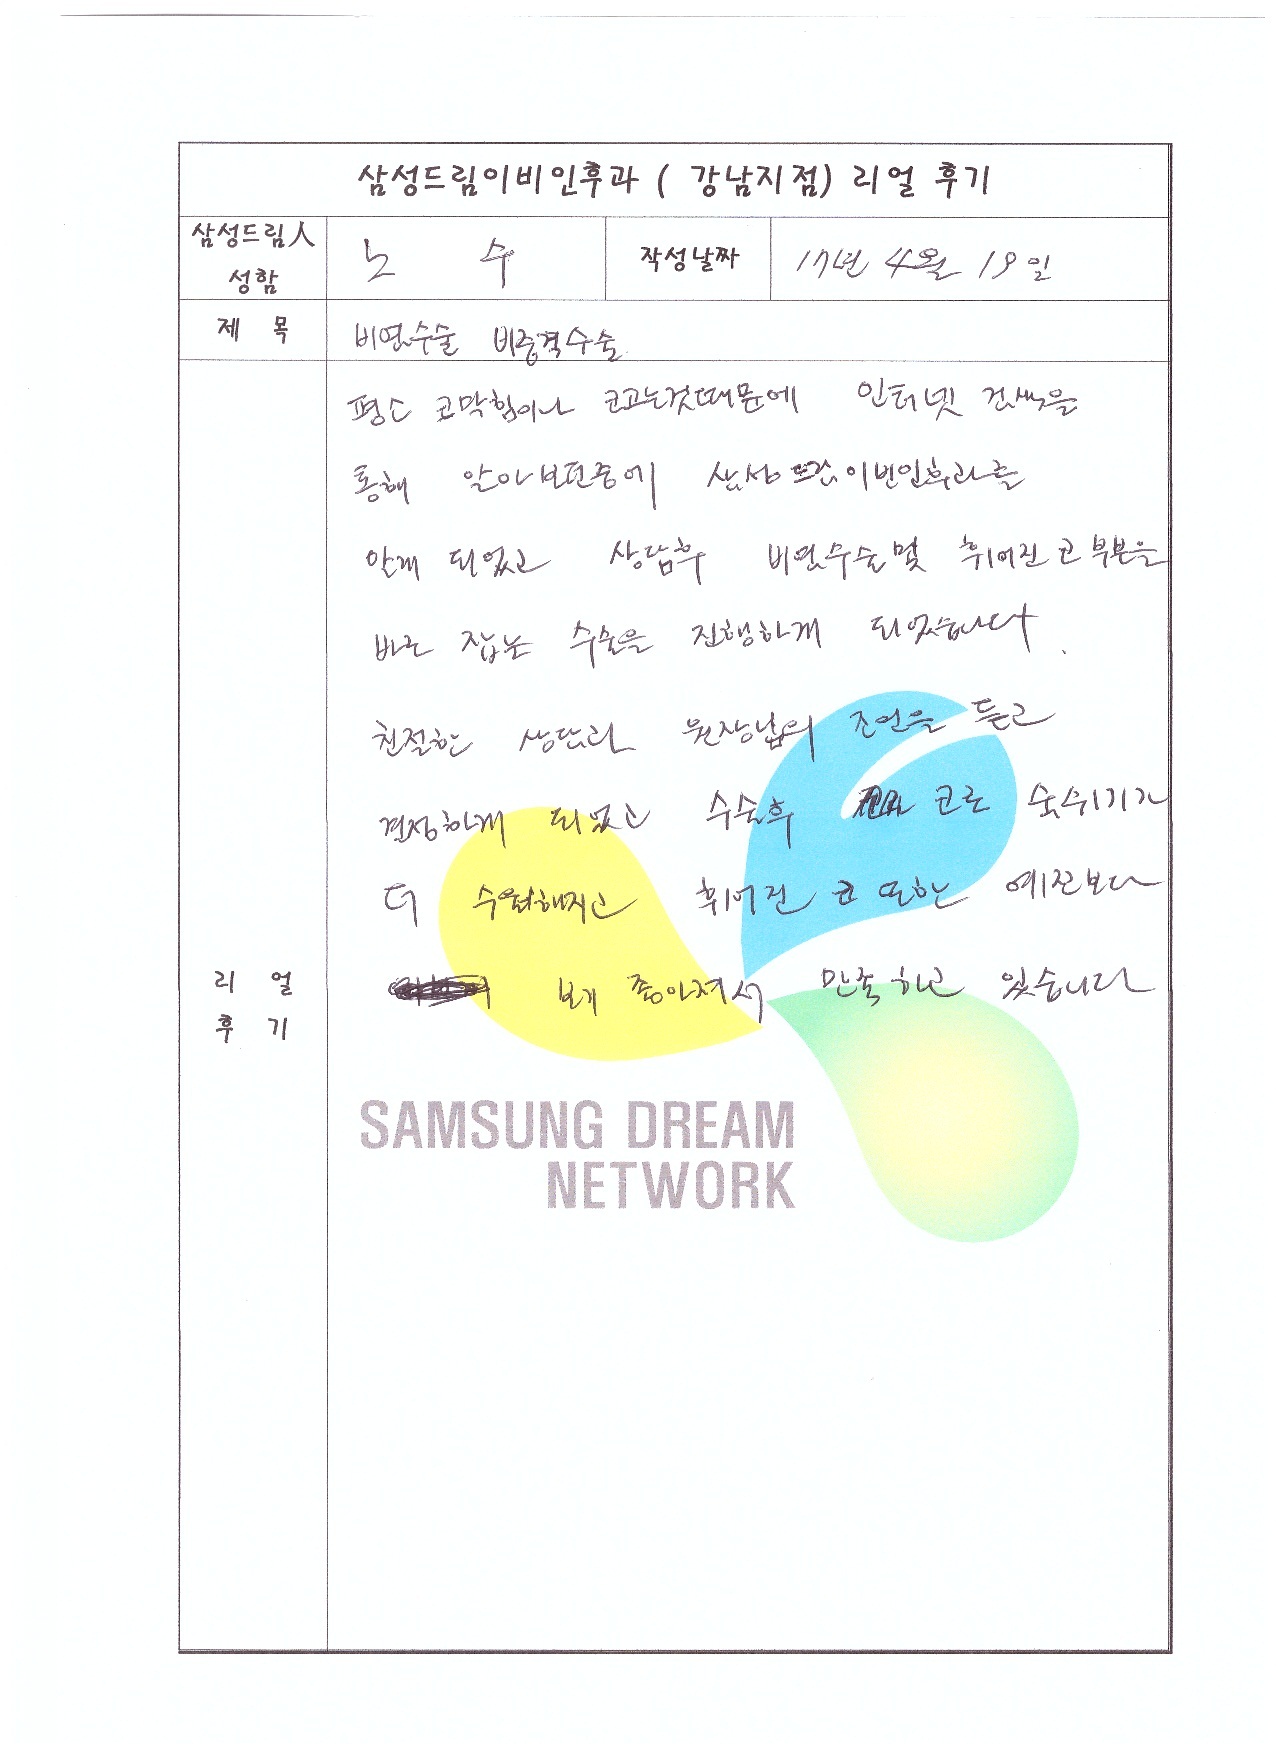 삼성드림이비인후과 ( 강남지점) 리얼 후기
삼성드림人 성함
노 수
작성날짜
17년 4월 19일
제 목
비염수술 비중격수술
평소 코막힘이나 코고는것때문에 인터넷 검색을
통해 알아보던중에 삼성드림이비인후과를
알게 되었고 상담후 비염수술및 휘어진 코 부분을
바로 잡는 수술을 진행하게 되었습니다.
친절한 상담과 원장님의 조언을 듣고
결정하게 되었고 수술후 코로 숨쉬기가
더 수월해지고 휘어진 코 또한 예전보다
보기 좋아져서 만족하고 있습니다
리 얼
후 기
SAMSUNG DREAM
NETWORK